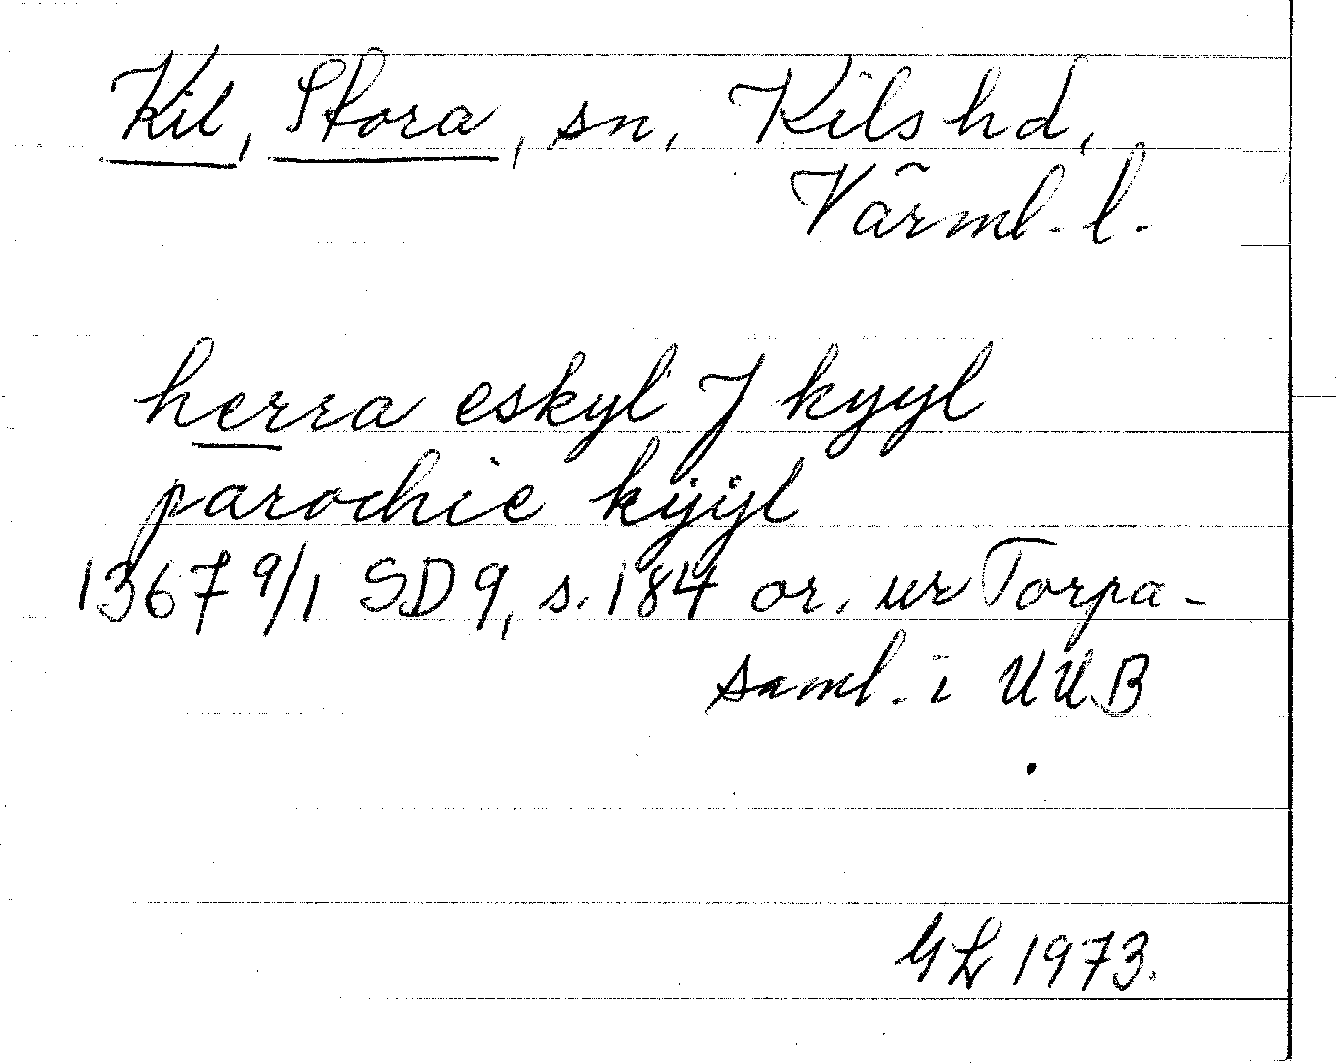 Kil, Stora, sn, Kils hd,
Värml. l.
herra eskyl J kyyl
parochie kÿÿl
1367 9/1 SD 9, s. 184 or. ur Torpa-
saml. i UUB
GL 1973.